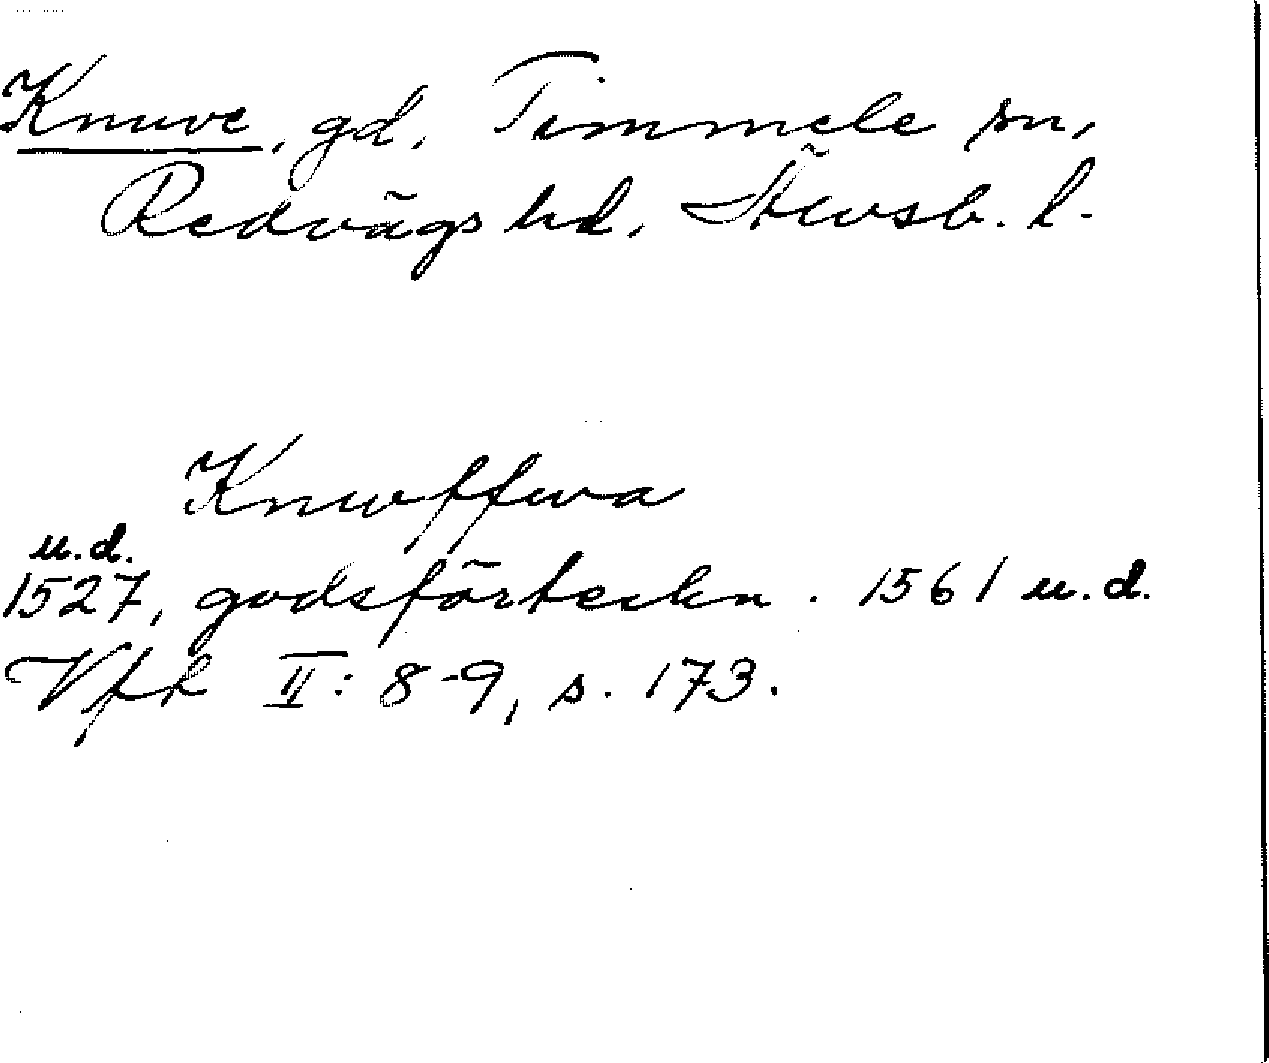 Knuve, gd, Timmele sn,
Redvägs hd, Älvsb. l.
Knwffwa
u.d.
1527, godsförteckn. 1561 u.d.
Vfk II: 8-9, s. 173.